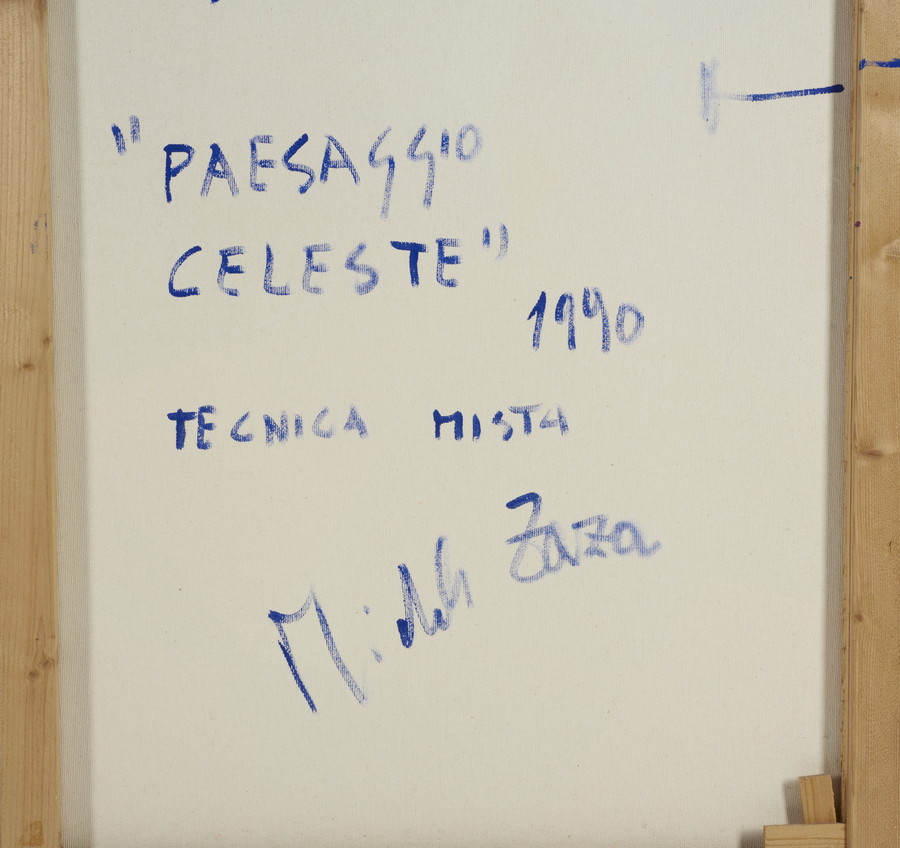 "PAESAGGIO
CELESTE"
1990
TECNICA MISTA
Michele Zaza